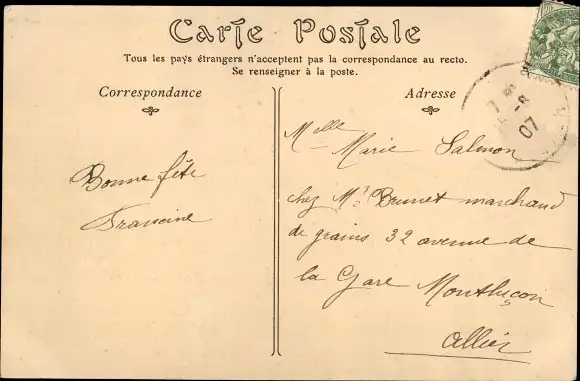 Carte Postale
Tous les pays étrangers n'acceptent pas la correspondance au recto.
Se renseigner à la poste.
Correspondance
Adresse
Bonne fête
Francine
Melle Marie Salmon
chez Mr Brunet marchand
de grains 32 avenue de
la Gare Montluçon
Allier
07